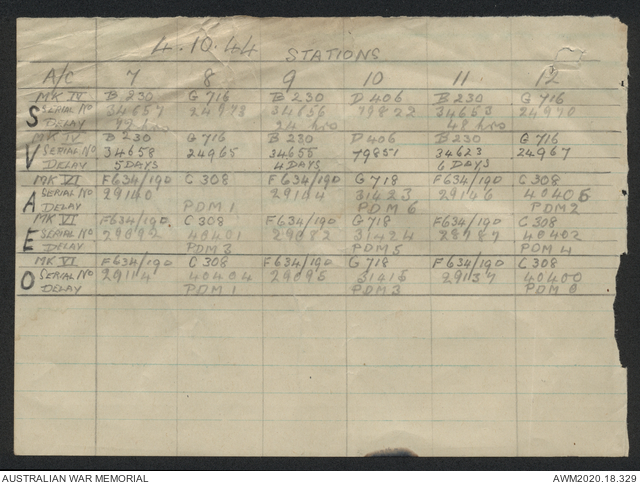 4.10.44 STATIONS
A/C 7 8 9 10 11 12
MK IV B 230 G 716 B 230 D 406 B 230 G 716
SERIAL NO 34657 24973 34656 79822 34653 24970
DELAY 48 hrs 24 hrs 48 hrs
MK IV B 230 G 716 B 230 D 406 B 230 G 716
SERIAL NO 34658 24965 34655 79851 34623 24967
DELAY 5 DAYS 4 DAYS 6 DAYS
MK VI F634/190 C 308 F 634/190 G 718 F 634/190 C 308
SERIAL NO 29140 29144 31423 29146 40406
DELAY PDM 1 PDM 6 PDM 2
MK VI F634/190 C 308 F 634/190 G 718 F 634/190 C 308
SERIAL NO 29092 40401 29082 31424 40402
DELAY PDM 3 PDM 5 PDM 4
MK VI F634/190 C 308 F 634/190 G 718 F 634/190 C 308
SERIAL NO 29114 40404 29095 31415 29137 40400
DELAY PDM 1 PDM 3 PDM 6
S
V
A
E
O
AUSTRALIAN WAR MEMORIAL AWM2020.18.329